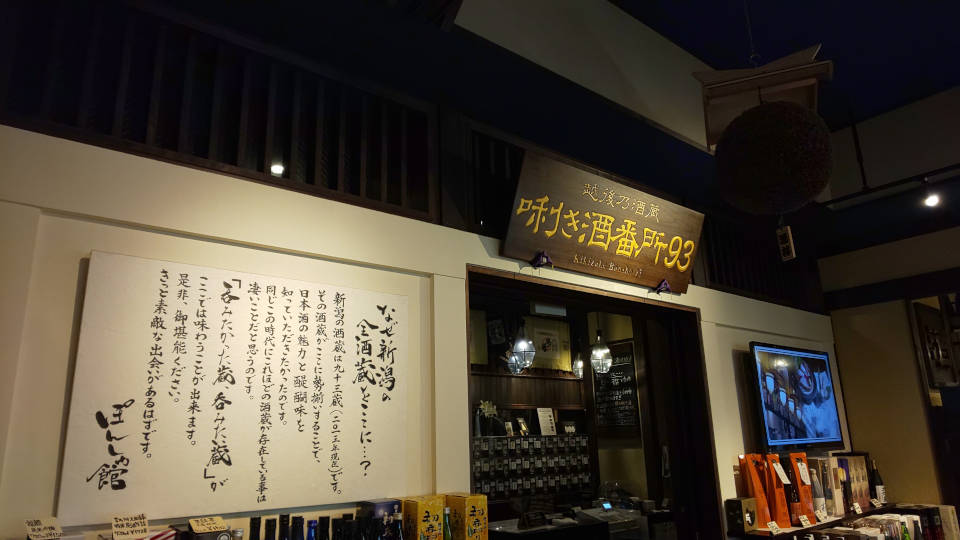 なぜ新潟の
全酒蔵とここに…?
新潟の酒蔵は九十三蔵(二〇一五年現在)です。
その酒蔵がここに勢揃いすることで、
日本酒の魅力と醍醐味を
知っていただきたかったのです。
同じこの時代にこれほどの酒蔵が存在している事は
凄いことだと思うのです。
「呑みたかった蔵 呑みた蔵」が
ここでは味わうことが出来ます。
是非、御堪能ください。
きっと素敵な出会いがあるはずです。
ぽんしゅ館
越後乃酒蔵
唎き酒番所93
Kikizake Bansho 93